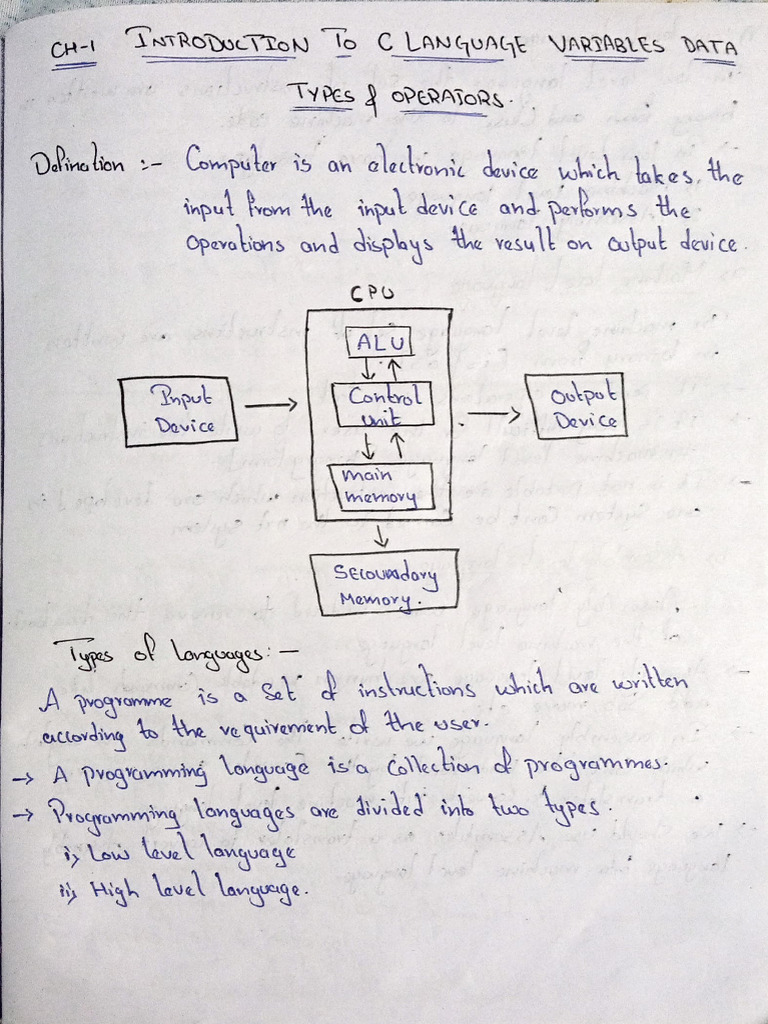 CH-1 INTRODUCTION TO C LANGUAGE VARIABLES DATA
TYPES & OPERATORS.
Defination :- Computer is an electronic device which takes the
input from the input device and performs the
operations and displays the result on output device.
CPU
ALU
Input
Device
Control
unit
Output
Device
main
memory
Secoundary
Memory.
Types of languages:-
A programme is a set of instructions which are written
according to the requirement of the user.
→ A programming language is a collection of programmes.
→ Programming languages are divided into two types.
i) Low level language
ii) High level language.